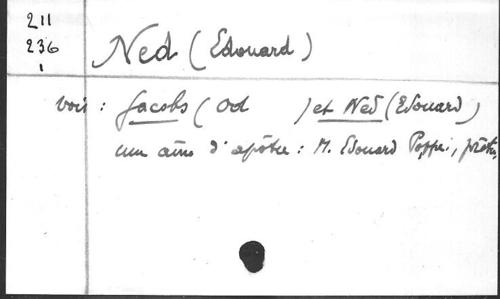 211
236
1
Ned (Edouard)
voir : Jacobs (Od ) et Ned (Edouard)
une âme d'apôtre : M. Edouard Poppe, prêtre